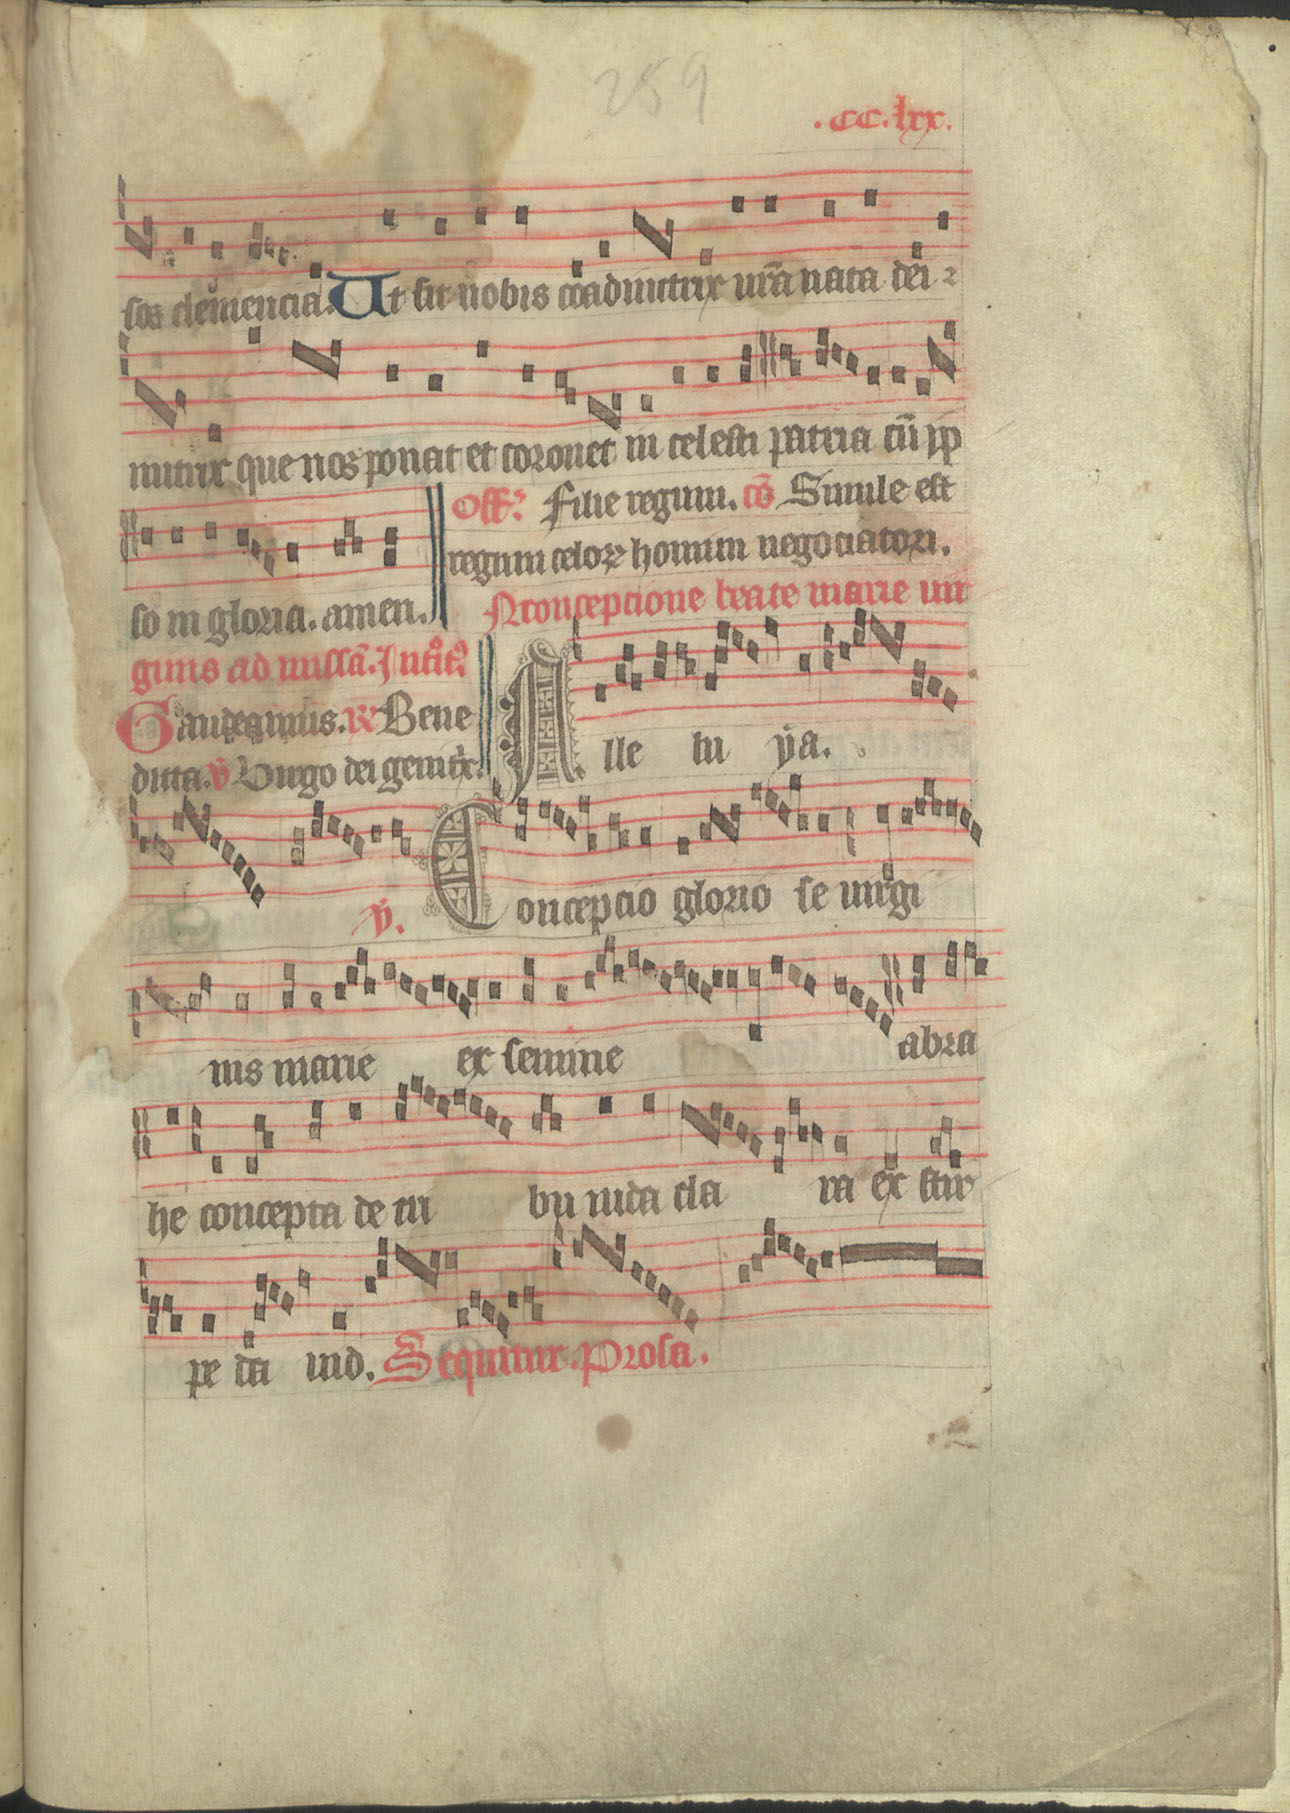 259
.CC.lxx.
sos clemencia. Ut sit nobis coadiutrix vr̃a nata dei
nitrix que nos ponat et coronet in celesti patria cũ ip
so in gloria. amen.
Off. Filie regum. cõ Simile est
regnum celoꝝ homini negociatori.
In concepcione beate marie uir
ginis ad missã. Introit᷒
Gaudeamus. R Bene
dicta. v̄ Uirgo dei genitrix.
Alle lu ya.
v̄. Concepcio glorio se uirgi
nis marie ex semine abra
he concepta de tri bu iuda cla ra ex stir
pe da uid. Sequitur. Prosa.